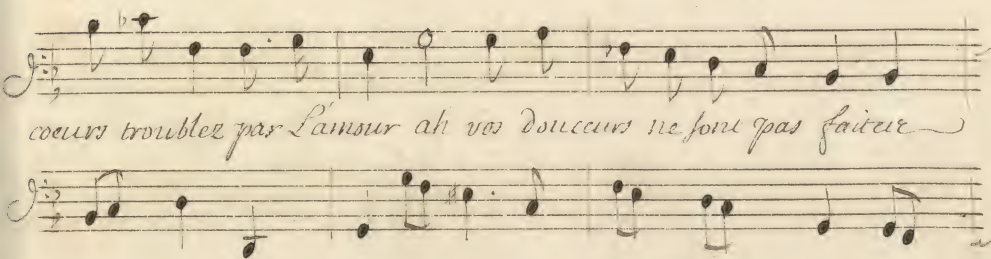 coeurs troublez par L'amour ah vos douceurs ne sont pas faites